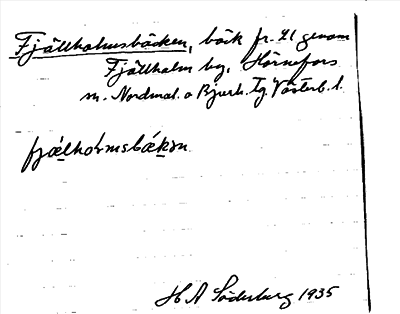 Fjällholmsbäcken, bäck fr. 21 genom
Fjällholm by, Hörnefors
sn. Nordmal. o Bjurh. tg. Västerb. l.
fjælhòrmsbǽkən
H A Söderberg 1935